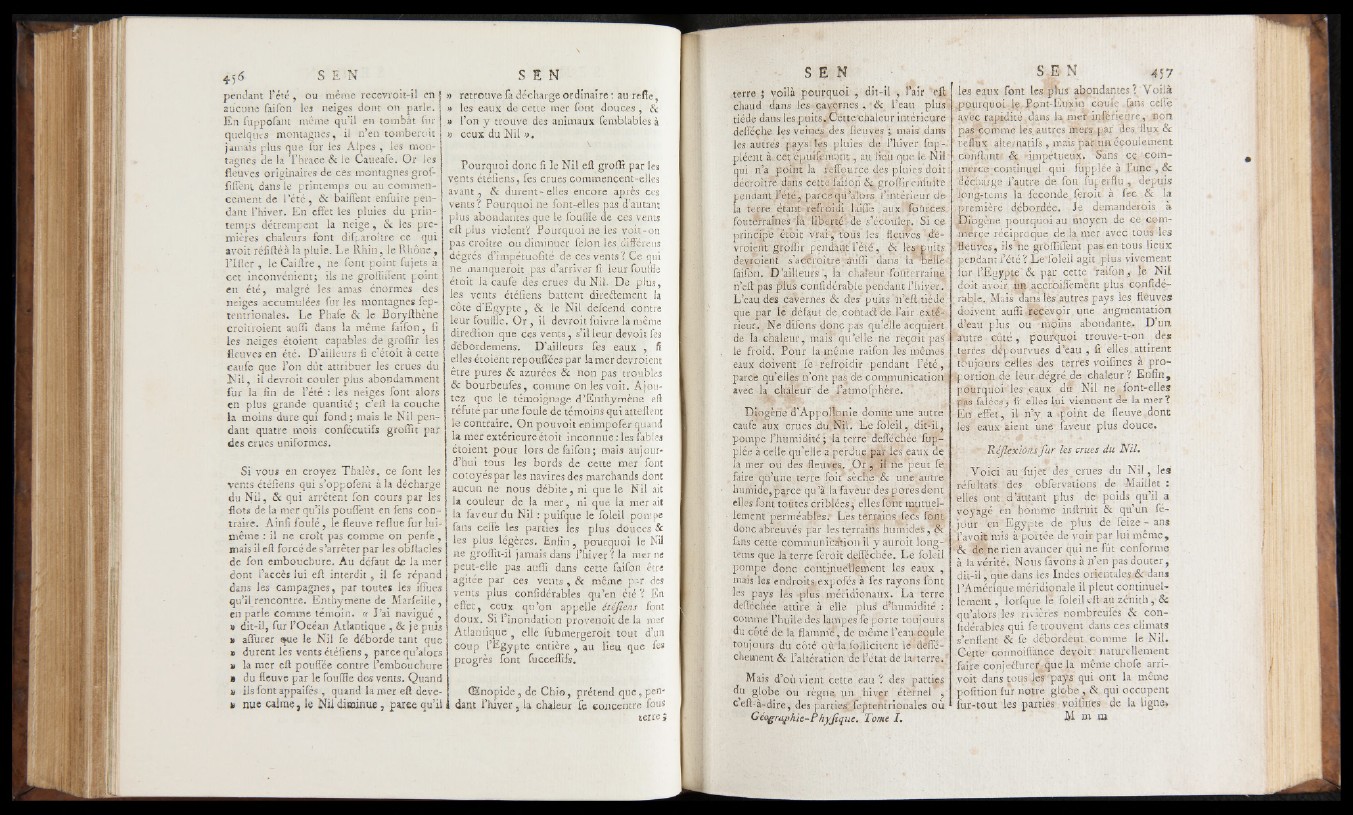 456 S E N
pendant l'été, ou même recevroit-il en
aucune saison les neiges dont on parle.
En supposant même qu'il en tombât sur
quelques montagnes, il n'en tomberoit
jamais plus que sur les Alpes, les mon-
tagnes de la Thrace & le Caucase. Or les
fleuves originaires de ces montagnes gros-
sissent dans le printemps ou au commen-
cement de l'été, & baissent ensuite pen-
dant l'hiver. En effet les pluies du prin-
temps détrempent la neige, & les pre-
mières chaleurs font disparoître ce qui
avoit résisté à la pluie. Le Rhin, le Rhône,
l'Ister, le Caistre, ne sont point sujets à
cet inconvénient; ils ne grossissent point
en été, malgré les amas énormes des
neiges accumulées sur les montagnes sep-
tentrionales. Le Phase & le Borysthène
croitroient aussi dans la même saison, si
les neiges étoient capables de grossir les
fleuves en été. D'ailleurs si c'étoit à cette
cause que l'on dût attribuer les crues du
Nil, il devroit couler plus abondamment
sur la fin de l'été : les neiges sont alors
en plus grande quantité; c'est la couche
la moins dure qui fond; mais le Nil pen-
dant quatre mois consécutifs grossit par
des crues uniformes.
Si vous en croyez Thalès, ce sont les
vents étésiens qui s'opposent à la décharge
du Nil, & qui arrêtent son cours par les
flots de la mer qu'ils poussent en sens con-
traire. Ainsi foulé, le fleuve reflue sur lui-
même : il ne croît pas comme on pense,
mais il est forcé de s'arrêter par les obstacles
de son embouchure. Au défaut de la mer
dont l'accès lui est interdit, il se répand
dans les campagnes, par toutes les issues
qu'il rencontre. Enthymene de Marseille,
en parle comme témoin. « J'ai navigué,
» dit-il, sur l'Océan Atlantique, & je puis
» assurer que le Nil se déborde tant que
» durent les vents étésiens, parce qu'alors
» la mer est poussée contre l'embouchure
» du fleuve par le souffle des vents. Quand
» ils sont appaisés, quand la mer est deve-
» nue calme, le Nil diminue, parce qu'il
S E N
» retrouve sa décharge ordinaire : au reste,
» les eaux de cette mer sont douces, &
» l'on y trouve des animaux semblables à
» ceux du Nil ».
Pourquoi donc si le Nil est grossi par les
vents étésiens, ses crues commencent-elles
avant, & durent-elles encore après ces
vents? Pourquoi ne sont-elles pas d'autant
plus abondantes que le souffle de ces vents
est plus violent? Pourquoi ne les voit-on
pas croître ou diminuer selon les différens
dégrés d'impétuosité de ces vents? Ce qui
ne manqueroit pas d'arriver si leur souffle
étoit la cause des crues du Nil. De plus,
les vents étésiens battent directement la
côte d'Egypte, & le Nil descend contre
leur souffle. Or, il devroit suivre la même
direction que ces vents, s'il leur devoit ses
débordemens. D'ailleurs ses eaux, si
elles étoient repoussées par la mer devroient
être pures & azurées & non pas troubles
& bourbeuses, comme on les voit. Ajou-
tez que le témoignage d'Enthymène est
réfuté par une foule de témoins qui attestent
le contraire. On pouvoit en imposer quand
la mer extérieure étoit inconnue : les fables
étoient pour lors de saison; mais aujour-
d'hui tous les bords de cette mer sont
cotoyés par les navires des marchands dont
aucun ne nous débite, ni que le Nil ait
la couleur de la mer, ni que la mer ait
la saveur du Nil : puisque le soleil pompe
sans cesse les parties les plus douces &
les plus légères. Enfin, pourquoi le Nil
ne grossit-il jamais dans l'hiver? la mer ne
peut-elle pas aussi dans cette saison être
agitée par ces vents, & même par des
vents plus considérables qu'en été? En
effet, ceux qu'on appelle étésiens sont
doux. Si l'inondation provenoit de la mer
Atlantique, elle submergeroit tout d'un
coup l'Egypte entière, au lieu que ses
progrès sont successifs.
Œnopide, de Chio, prétend que, pen-
dant l'hiver, la chaleur se concentre sous
terre;
S E N
terre; voilà pourquoi, dit-il, l'air est
chaud dans les cavernes, & l'eau plus
tiède dans les puits. Cette chaleur intérieure
dessèche les veines des fleuves; mais dans
les autres pays les pluies de l'hiver sup-
pléent à cet épuisement, au lieu que le Nil
qui n'a point la ressource des pluies doit
décroître dans cette saison & grossir ensuite
pendant l'été, parce qu'alors l'intérieur de
la terre étant refroidi laisse aux sources
souterraines la liberté de s'écouler. Si ce
principe étoit vrai, tous les fleuves de-
vroient grossir pendant l'été, & les puits
devroient s'accroître aussi dans la belle
saison. D'ailleurs, la chaleur souterraine
n'est pas plus considérable pendant l'hiver.
L'eau des cavernes & des puits n'est tiède
que par le défaut de contact de l'air exté-
rieur. Ne disons donc pas qu'elle acquiert
de la chaleur, mais qu'elle ne reçoit pas
le froid. Pour la même raison les mêmes
eaux doivent se refroidir pendant l'été,
parce qu'elles n'ont pas de communication
avec la chaleur de l'atmosphère.
Diogène d'Appollonie donne une autre
cause aux crues du Nil. Le soleil, dit-il,
pompe l'humidité; la terre desséchée sup-
plée à celle qu'elle a perdue par les eaux de
la mer ou des fleuves. Or, il ne peut se
faire qu'une terre soit sèche & une autre
humide, parce qu'à la faveur des pores dont
elles sont toutes criblées, elles sont mutuel-
lement perméables. Les terrains secs sont
donc abreuvés par les terrains humides, &
sans cette communication il y auroit long-
tems que la terre seroit desséchée. Le soleil
pompe donc continuellement les eaux,
mais les endroits exposés à ses rayons sont
les pays les plus méridionaux. La terre
desséchée attire à elle plus d'humidité :
comme l'huile des lampes se porte toujours
du côté de la flamme, de même l'eau coule
toujours du côté où la sollicitent le dessé-
chement & l'altération de l'état de la terre.
Mais d'où vient cette eau? des parties
du globe où règne un hiver éternel,
c'est-à-dire, des parties septentrionales où
Géographie-Physique. Tome I.
S E N 457
les eaux sont les plus abondantes? Voilà
pourquoi le Pont-Euxin coule sans cesse
avec rapidité dans la mer inférieure, non
pas comme les autres mers par des flux &
reflux alternatifs, mais par un écoulement
constant & impétueux. Sans ce com-
merce continuel qui supplée à l'une, &
décharge l'autre de son superflu, depuis
long-tems la seconde seroit à sec & la
première débordée. Je demanderois à
Diogène pourquoi au moyen de ce com-
merce réciproque de la mer avec tous les
fleuves, ils ne grossissent pas en tous lieux
pendant l'été? Le soleil agit plus vivement
sur l'Egypte & par cette raison, le Nil
doit avoir un accroissement plus considé-
rable. Mais dans les autres pays les fleuves
doivent aussi recevoir une augmentation
d'eau plus ou moins abondante. D'un
autre côté, pourquoi trouve-t-on des
terres dépourvues d'eau, si elles attirent
toujours celles des terres voisines à pro-
portion de leur dégré de chaleur? Enfin,
pourquoi les eaux du Nil ne sont-elles
pas salées, si elles lui viennent de la mer?
En effet, il n'y a point de fleuve dont
les eaux aient une saveur plus douce.
Réflexions sur les crues du Nil.
Voici au sujet des crues du Nil, les
résultats des observations de Maillet :
elles ont d'autant plus de poids qu'il a
voyagé en homme instruit & qu'un sé-
jour en Egypte de plus de seize ans
l'avoit mis à portée de voir par lui même,
& de ne rien avancer qui ne fût conforme
à la vérité. Nous savons à n'en pas douter,
dit-il, que dans les Indes orientales & dans
l'Amérique méridionale il pleut continuel-
lement, lorsque le soleil est au zénith, &
qu'alors les rivières nombreuses & con-
sidérables qui se trouvent dans ces climats
s'enflent & se débordent comme le Nil.
Cette connoissance devoit naturellement
faire conjecturer que la même chose arri-
voit dans tous les pays qui ont la même
position sur notre globe, & qui occupent
sur-tout les parties voisines de la ligne.
M m m